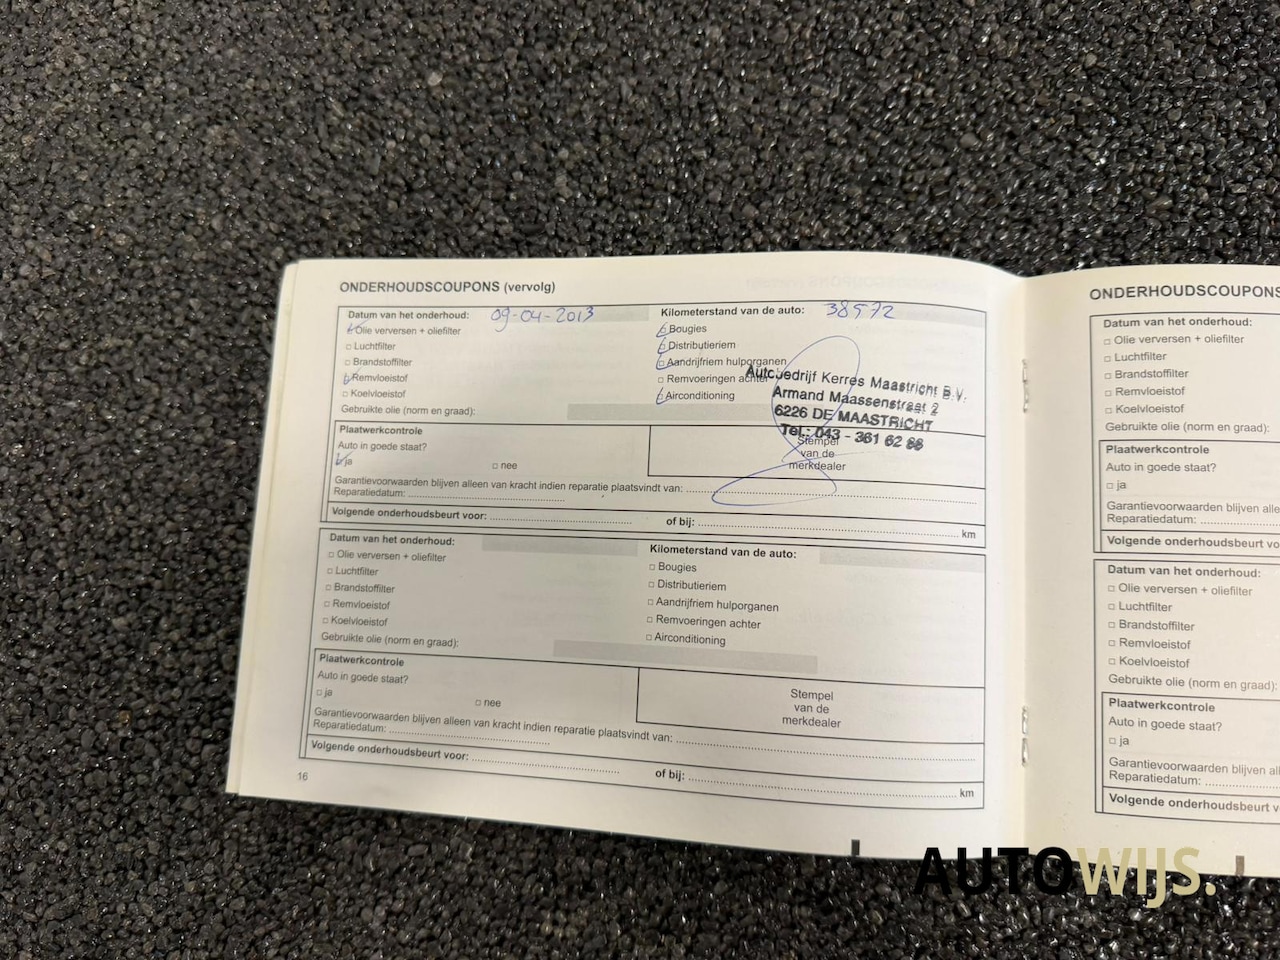 ONDERHOUDSCOUPONS (vervolg)
Datum van het onderhoud: 09-04-2013
Kilometerstand van de auto: 38572
Olie verversen + oliefilter
Luchtfilter
Brandstoffilter
Remvloeistof
Koelvloeistof
Gebruikte olie (norm en graad):
Bougies
Distributieriem
Aandrijfriem hulporganen
Remvoeringen achter
Airconditioning
Autobedrijf Kerres Maastricht B.V.
Armand Maassenstraat 2
6226 DE MAASTRICHT
Tel.: 043 - 361 62 88
Plaatwerkcontrole
Auto in goede staat?
ja
nee
Stempel
van de
merkdealer
Garantievoorwaarden blijven alleen van kracht indien reparatie plaatsvindt van:
Reparatiedatum:
Volgende onderhoudsbeurt voor: of bij: km
Datum van het onderhoud:
Kilometerstand van de auto:
Olie verversen + oliefilter
Luchtfilter
Brandstoffilter
Remvloeistof
Koelvloeistof
Gebruikte olie (norm en graad):
Bougies
Distributieriem
Aandrijfriem hulporganen
Remvoeringen achter
Airconditioning
Plaatwerkcontrole
Auto in goede staat?
ja
nee
Stempel
van de
merkdealer
Garantievoorwaarden blijven alleen van kracht indien reparatie plaatsvindt van:
Reparatiedatum:
Volgende onderhoudsbeurt voor: of bij: km
16
ONDERHOUDSCOUPONS
Datum van het onderhoud:
Olie verversen + oliefilter
Luchtfilter
Brandstoffilter
Remvloeistof
Koelvloeistof
Gebruikte olie (norm en graad):
Plaatwerkcontrole
Auto in goede staat?
ja
Garantievoorwaarden blijven alle
Reparatiedatum:
Volgende onderhoudsbeurt vo
Datum van het onderhoud:
Olie verversen + oliefilter
Luchtfilter
Brandstoffilter
Remvloeistof
Koelvloeistof
Gebruikte olie (norm en graad):
Plaatwerkcontrole
Auto in goede staat?
ja
Garantievoorwaarden blijven alle
Reparatiedatum:
Volgende onderhoudsbeurt v
AUTOWIJS.